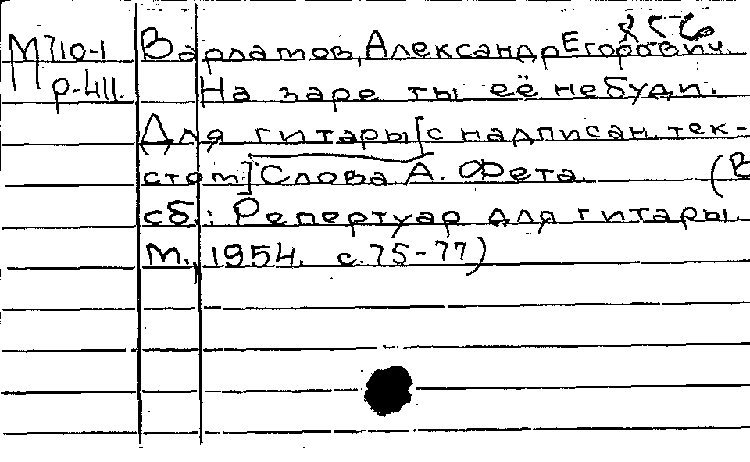 М 710-1 Варламов, Александр Егорович.
р-411. На заре ты её не буди.
Для гитары [с надписан. тек-
стом.] Слова А. Фета. (В
сб.: Репертуар для гитары.
М., 1954. с. 75-77)